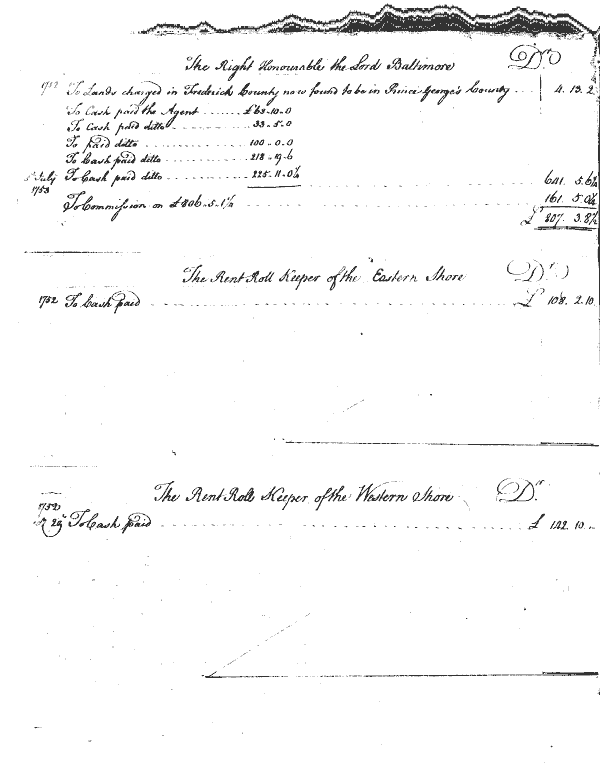 The Right Honourable the Lord Baltimore Dr
To Lands charged in Frederick County now found to be in Prince George's County 4. 13. 2
To Cash paid the Agent £63-10-0
To Cash paid ditto 33-5-0
To paid ditto 100-0-0
To Cash paid ditto 218-19-6
July 1753 To Cash paid ditto 225-11-0¼ 641. 5.6¼
To Commission on £806-5-1½ 161. 5.0¼
£ 807. 3.8½
The Rent Roll Keeper of the Eastern Shore Dr
1752 To Cash paid £ 108. 2. 10
The Rent Roll Keeper of the Western Shore Dr
1752
29 To Cash paid £ 122. 10 ..